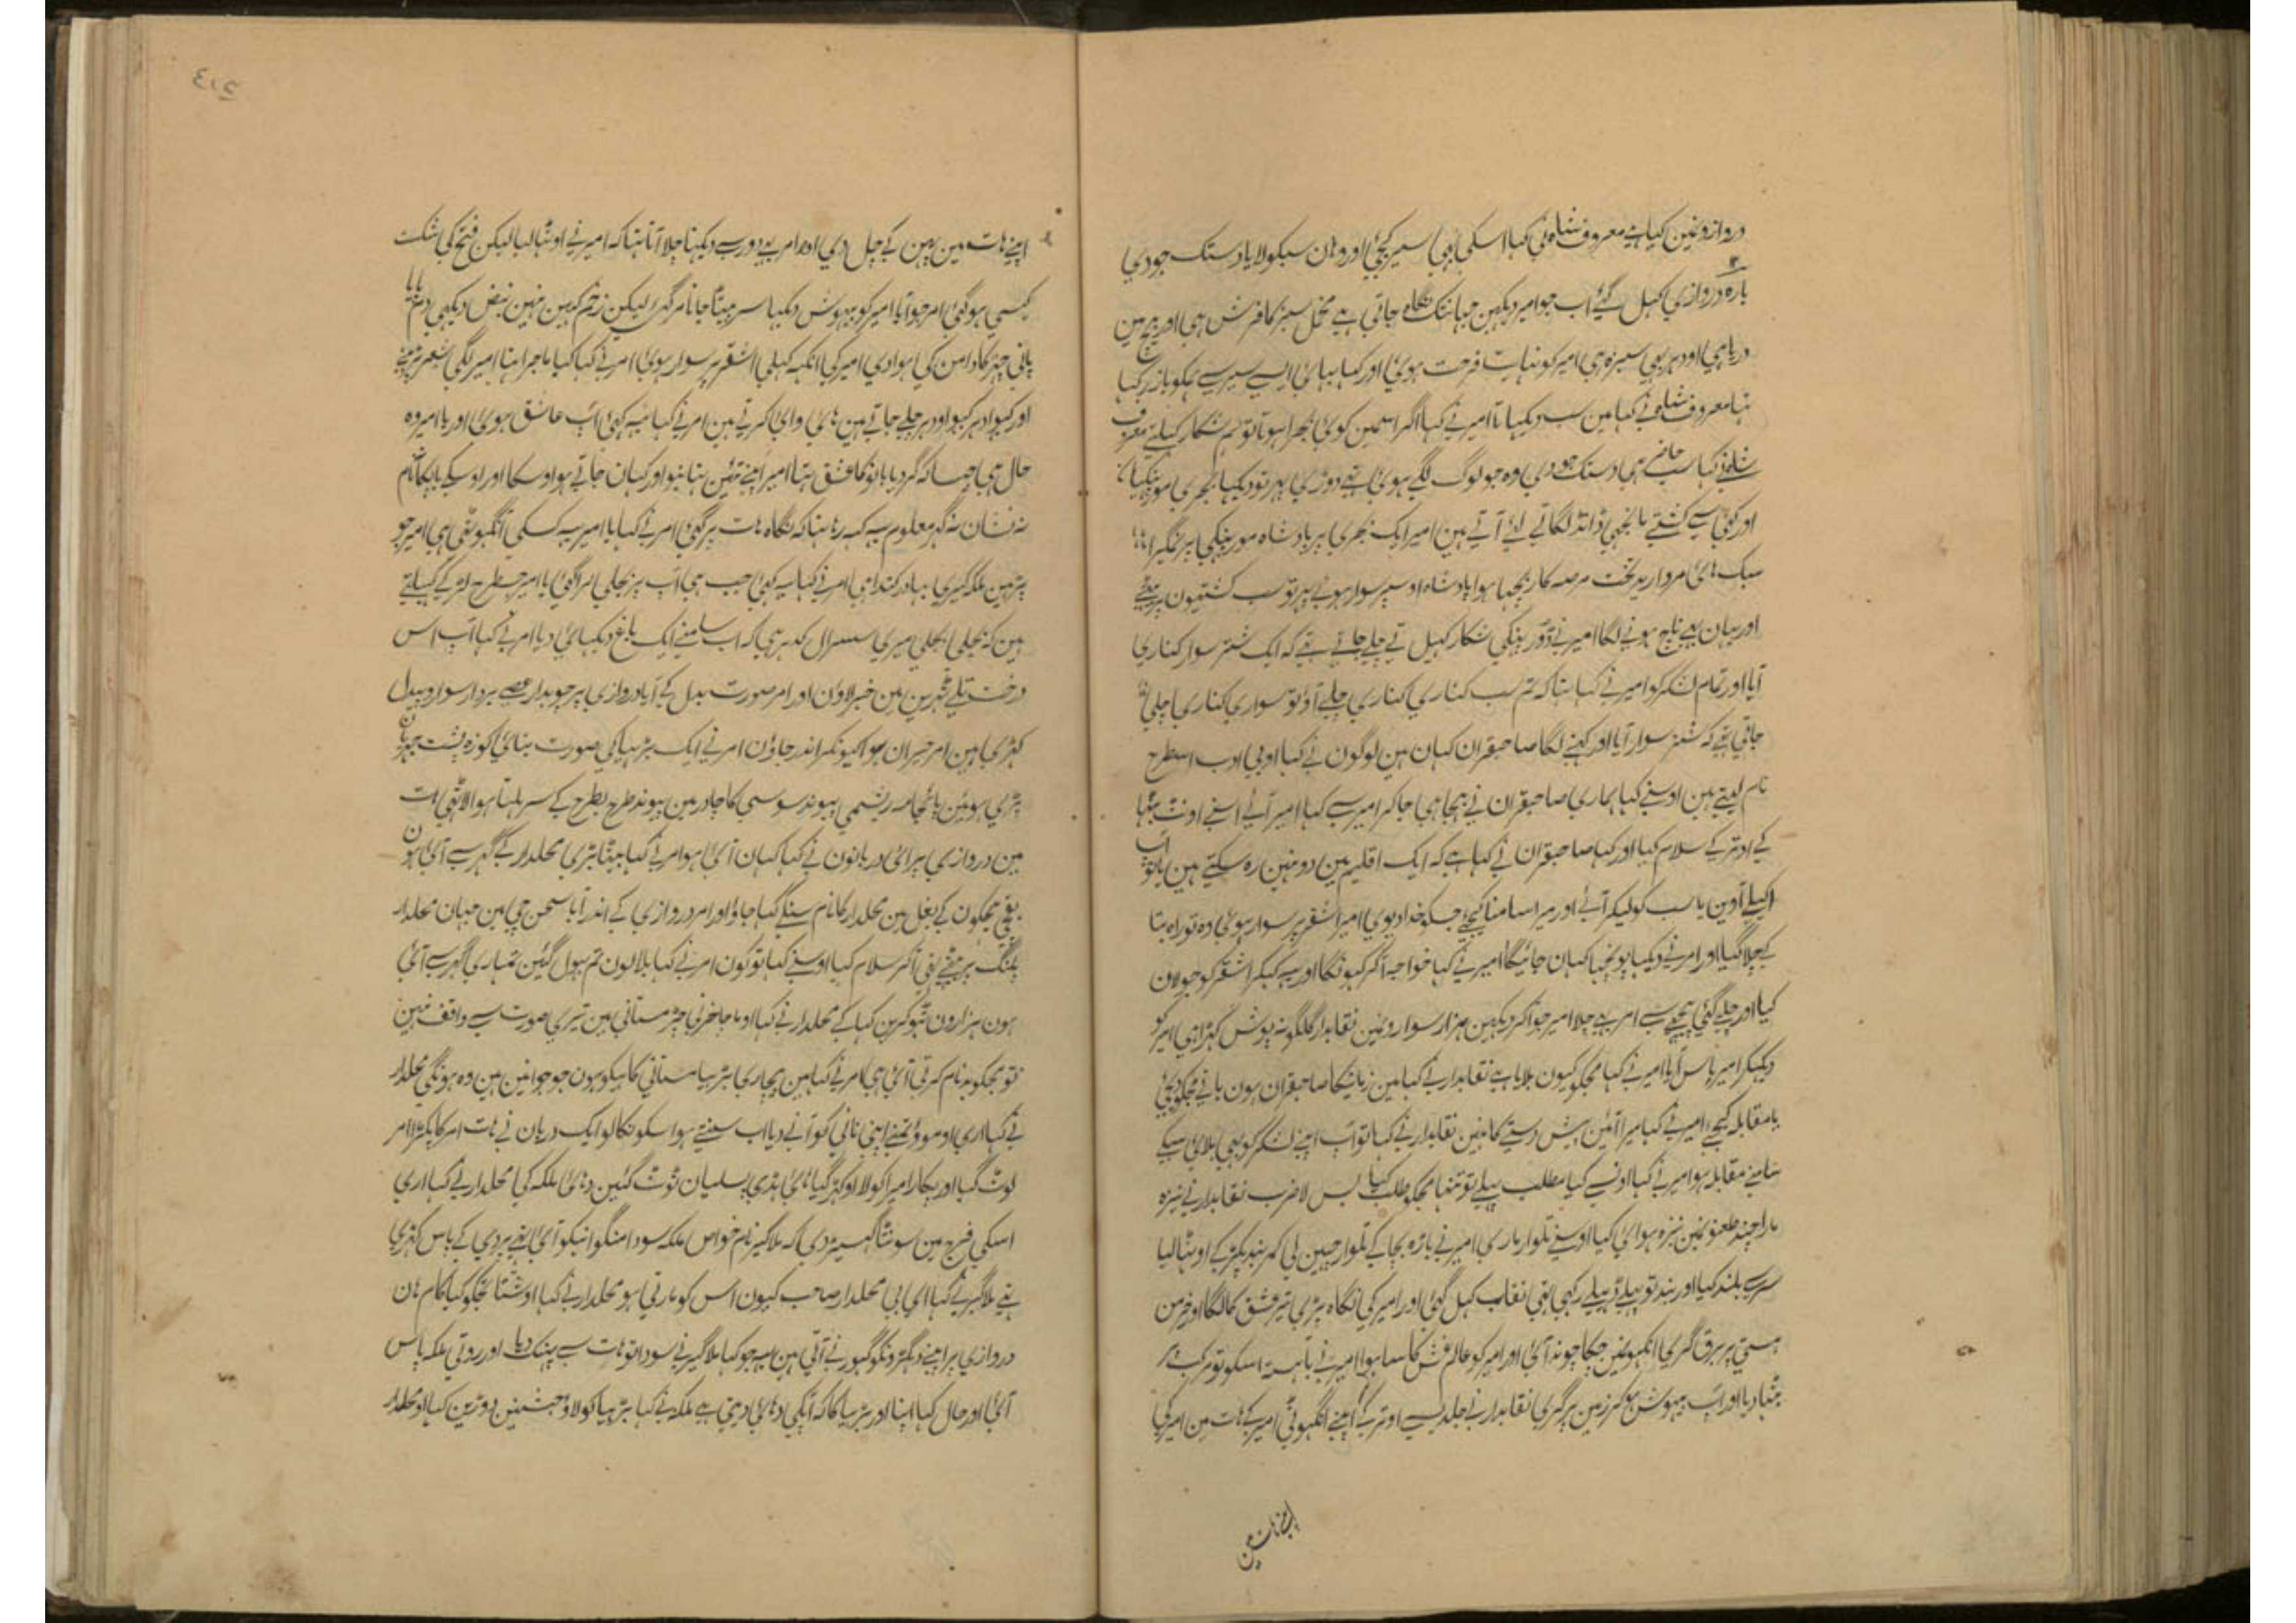 دروازونمین کیا ہے معروف شاہ نی کہا اسکی بہی سیر کیجئ اور وہان سبکو لایا دستک جو دی
بارہ دروازی کہل گئے اب جو امیر دیکہین جہانتک نگاہ جاتی ہے مخمل سبز کا فرش ہی اور بیچ مین
دریا ہی اودہر بہی سبزہ ہی امیر کو نہایت فرحت ہوئی اور کہا بہائی ایسے سیر سے ہمکو باز رکہا
تہا معروف شاہ نے کہا مین سب دیکہاتا امیر نے کہا اگر اسمین کوئی بجرا ہوتا تو ہم شکار کہیلتے معروف
شاہ نے کہا سب حاضر ہی دستک جو دی وہ جو لوگ لگے ہوئی تہے دوڑی پہر تو دیکہا بجری مورپنکہیان
اور کئی سے کشتے مانجہی ڈانڈ لگاتے لئے آتے ہین امیر ایک بجری پر بادشاہ مورپنکہی پر نمگیرا
مروارید تخت مرصع کار بچہا ہوا بادشاہ اوسپر سوار ہوے پہر تو سب کشتیون پر بیٹہے
اور یہان بہے ناچ ہونے لگا امیر نے شکار کہیل تے چلے جاتے تہے کہ ایک شتر سوار کناری
آیا اور تمام لشکر کو امیر نے کہا تہا کہ تم سب کناری کناری چلے آؤ تو سواری کناری چلی
جاتی تہے کہ شتر سوار آیا اور کہنے لگا صاحبقران کہان ہین لوگون نے کہا او بی ادب اسطرح
نام لیتے ہین اوسنے کہا ہماری صاحبقران نے بہیجا ہی جا کر امیر سے کہا امیر آئے اسنے اونٹ بٹہا
کے اوتر کے سلام کیا اور کہا صاحبقران نے کہا ہے کہ ایک اقلیم مین دو نہین رہ سکتے ہین یا تو آپ
اکیلے آوین یا سب کو لیکر آئے اور میرا سامنا کیجے جسکو خدا دیوی امیر اشقر پر سوار ہوئی وہ تو راہ بتا
کے چلا گیا اور امر نے دیکہا پونچہا کہان جائیگا امیر نے کہا خواجہ آکر کہونگا اور یہ کہکر اشقر کو جولان
کیا اور چلے گئی پیچہے سے امر بہے چلا امیر جو آکر دیکہین ہزار سوارونمین نقابدار گلگونہ پوش کہڑا ہی امیر کو
دیکہکر امیر پاس آیا امیر نے کہا مجکو کیون بلایا ہے نقابدار نے کہا مین زمانیکا صاحبقران ہون
یا مقابلہ کیجے امیر نے کہا میرا آئین پیش دستے کا نہین نقابدار نے کہا تو آپ اپنے لشکر کو بہی بلائی سبکے
سامنے مقابلہ ہو امیر نے کہا اونسے کیا مطلب پہلے تو تنہا مجکو طلب کیا بس لا ضرب نقابدار نے نیزہ
مارا چند طعنونمین نیزہ ہوائی کیا اوسنے تلوار ماری امیر نے باڑہ بچا کے تلوار چہین لی کمربند پکڑ کے اوٹہا لیا
سر سے بلند کیا اور بند تو پہلے ڈہیلے رکہی تہی نقاب کہل گئی اور امیر کی نگاہ پڑی تیر عشق کا لگا اور خرمن
ہستی پر برق گری آنکہونمین چکاچوند آئی اور امیر کو عالم غش کا سا ہوا امیر نے باہستہ اسکو تو مرکب پر
بٹہا دیا اور آپ بیہوش ہو کر زمین پر گری نقابدار نے جلدیسے اوتر کے اپنے انگہوٹی امیر کے ہات مین امیر کی
اپنے ہات مین
اپنے ہات مین پہن کے چل دی اور امر بہے دور سے دیکہتا چلا آتا تہا کہ امیر نے اوٹہا لیا لیکن فتح کی شکست
کیسی ہو گئی امر جو آیا امیر کو بیہوش دیکہا سر پیٹا جانا مر گئی لیکن زخم کہین نہین نبض دیکہی دم پایا
پانی چہڑکا دامن کی ہوا دی امیر کی آنکہہ کہلی اشقر پر سوار ہوئی امر نے کہا کیا ماجرا تہا امیر لگی شعر پڑہنے
اور کہوا دہر کہوا اودہر چلے جاتے ہین ہائی وای کرتے ہین امر نے کہا یہ کہئی آپ عاشق ہوئی اور یا امیر وہ
حال ہی جیسا کہ گرد یا بانو کا عشق تہا امیر اپنے تئین بتا نہو اور کہان جاتے ہو اوسکا اور اوسکے باپکا نام
نہ نشان نہ گہر معلوم یہ کہہ رہا تہا کہ نگاہ ہات پر گئی امر نے کہا یا امیر یہ کسکی انگہوٹہی ہی امیر جو
پڑہین ملکہ گیری بہادر کندا ہی امر نے کہا یہ کہئی جب ہی آپ پر بجلی گر گئی یا امیر جسطرح لڑکے کہیلتے
ہین کہ بجلی بجلی میری سسرال کدہر ہی کہ اب سامنے ایک باغ دیکہائی دیا امر نے کہا آپ اس
درخت تلے ٹہرین مین خبر لاؤن اور امر صورت بدل کے آیا دروازی پر چوبدار عصے بردار سوار و پیدل
کہڑی ہین امر حیران ہوا کیونکر اندر جاؤن امر نے ایک بڑہیا کی صورت بنائی کوزہ پشت جہریان
پڑی ہوئین پائجامہ ریشمی پیوند سوسی کا چادر مین پیوند طرح بطرح کے سر ہلتا ہوا لاٹہی ہات
مین دروازی پر آئی دربانون نے کہا کہان آئی ہو امر نے کہا بیٹا بڑی محلدار کے گہر سے آئی ہون
بغل مین محلدار کا نام سنکے کہا جاؤ اور امر دروازی کے اندر آیا سحن چی مین جہان محلدار
پلنگ پر بیٹہے تہی آکر سلام کیا اوسنے کہا تو کون امر نے کہا بلا لون تم بہول گئین تمہاری گہر سے آئی
ہون ہزارون ٹہوکرین کہا کے محلدار نے کہا او ما جا خرنی چہر مستانی مین تیری صورت سے واقف نہین
تو مجکو بدنام کرتی آئی ہی امر نے کہا مین بیچاری بڑہیا مستانی کاہیکو ہون جو جوانین ہین وہ ہونگی محلدار
نے کہا اری او موؤ تمنے اپنی نانی کو آنے دیا اب سنتے ہو اسکو نکالو ایک دربان نے ہات امر کا پکڑا امر
لوٹ گیا اور پکارا میرا کولا اوکہڑ گیا ہائی ہڈی پسلیان ٹوٹ گئین دہائی ملکہ کی محلدار نے کہا اری
اسکی فرج مین سونٹا گہسیڑ دی کہ ملاگیر نام خواص ملکہ سودا منگوانیکو آئی تہی پردی کے پاس کہڑی
تہے ملاگیر نے کہا ای بی محلدار صاحب کیون اس کو مارتی ہو محلدار نے کہا او شتا تجکو کیا کام ہان
دروازی پر اپنے دگہڑونکو گہورنے آتی ہین یہ جو کہا ملاگیر نے سودا تو ہات سے پہنک دیا اور روتی ملکہ پاس
آئی اور حال کہا اپنا اور بڑہیا کا کہ آپکی دہائی دیتی ہے ملکہ نے کہا بڑہیا کو لاؤ حبشنین دوڑین کہا او محلدار